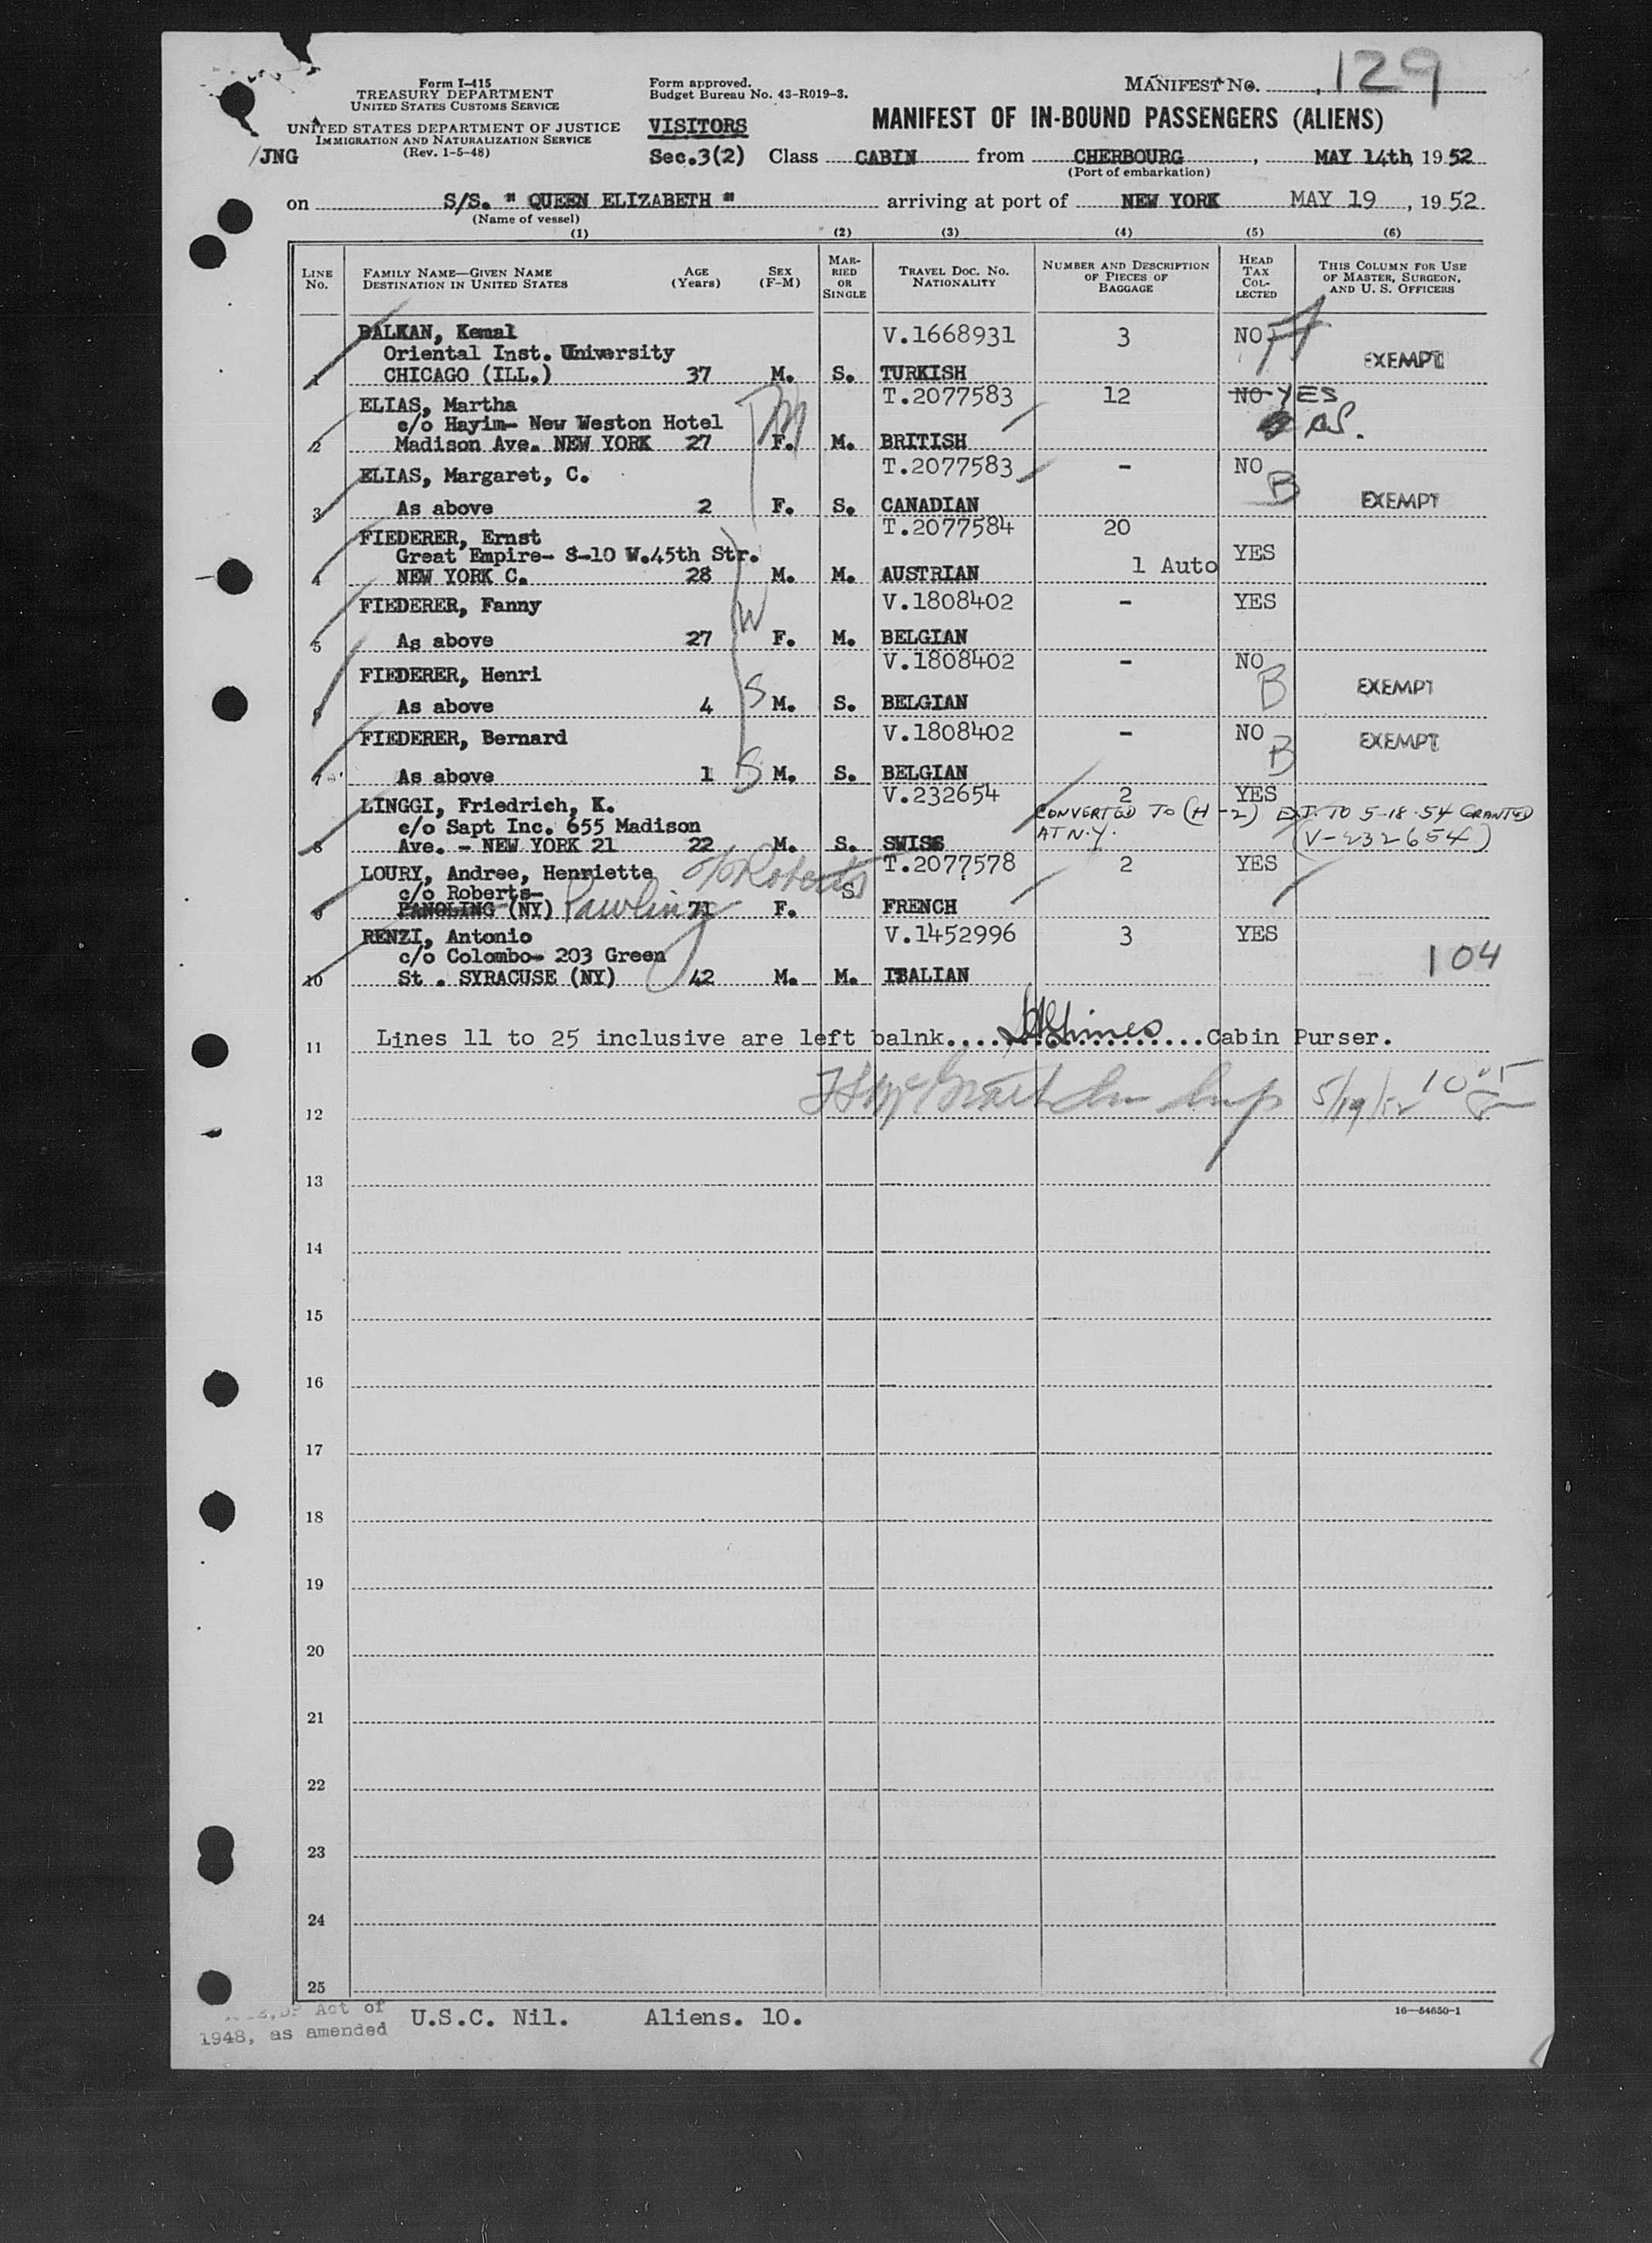 Form I-415
TREASURY DEPARTMENT
UNITED STATES CUSTOMS SERVICE
UNITED STATES DEPARTMENT OF JUSTICE
IMMIGRATION AND NATURALIZATION SERVICE
(Rev. 1-5-48)
/JNG
Form approved.
Budget Bureau No. 43-R019-3.
MANIFEST NO. 129
VISITORS
MANIFEST OF IN-BOUND PASSENGERS (ALIENS)
Sec.3(2) Class CABIN from CHERBOURG, MAY 14th, 1952
(Port of embarkation)
on S/S. " QUEEN ELIZABETH " arriving at port of NEW YORK MAY 19, 1952
(Name of vessel)
(1) (2) (3) (4) (5) (6)
LINE NO. FAMILY NAME—GIVEN NAME DESTINATION IN UNITED STATES AGE (Years) SEX (F-M) MARRIED OR SINGLE TRAVEL DOC. NO. NATIONALITY NUMBER AND DESCRIPTION OF PIECES OF BAGGAGE HEAD TAX COLLECTED THIS COLUMN FOR USE OF MASTER, SURGEON, AND U. S. OFFICERS
BALKAN, Kemal V.1668931 3 NO A
Oriental Inst. University EXEMPT
1 CHICAGO (ILL.) 37 M. S. TURKISH
ELIAS, Martha T.2077583 12 NO-YES
c/o Hayim- New Weston Hotel
2 Madison Ave. NEW YORK 27 F. M. BRITISH
ELIAS, Margaret, C. T.2077583 - NO B
3 As above 2 F. S. CANADIAN EXEMPT
FIEDERER, Ernst T.2077584 20
Great Empire- S-10 W.45th Str. 1 Auto YES
4 NEW YORK C. 28 M. M. AUSTRIAN
FIEDERER, Fanny V.1808402 - YES
W
5 As above 27 F. M. BELGIAN
FIEDERER, Henri V.1808402 - NO B EXEMPT
6 As above 4 S M. S. BELGIAN
FIEDERER, Bernard V.1808402 - NO B EXEMPT
7 As above 1 S M. S. BELGIAN
LINGGI, Friedrich, K. V.232654 2 YES
CONVERTED TO (H-2) EXT. TO 5-18-54 GRANTED
c/o Sapt Inc. 655 Madison AT N.Y. (V-232654)
8 Ave. - NEW YORK 21 22 M. S. SWISS
LOURY, Andree, Henriette c/o Roberts T.2077578 2 YES
c/o Roberts- S
9 PANGLING (NY) Pawling 71 F. FRENCH
RENZI, Antonio V.1452996 3 YES
c/o Colombo- 203 Green 104
10 St . SYRACUSE (NY) 42 M. M. ITALIAN
11 Lines 11 to 25 inclusive are left balnk.... Cabin Purser.
5/19/52
12
13
14
15
16
17
18
19
20
21
22
23
24
25
DP Act of
1948, as amended
U.S.C. Nil. Aliens. 10.
16—54650-1